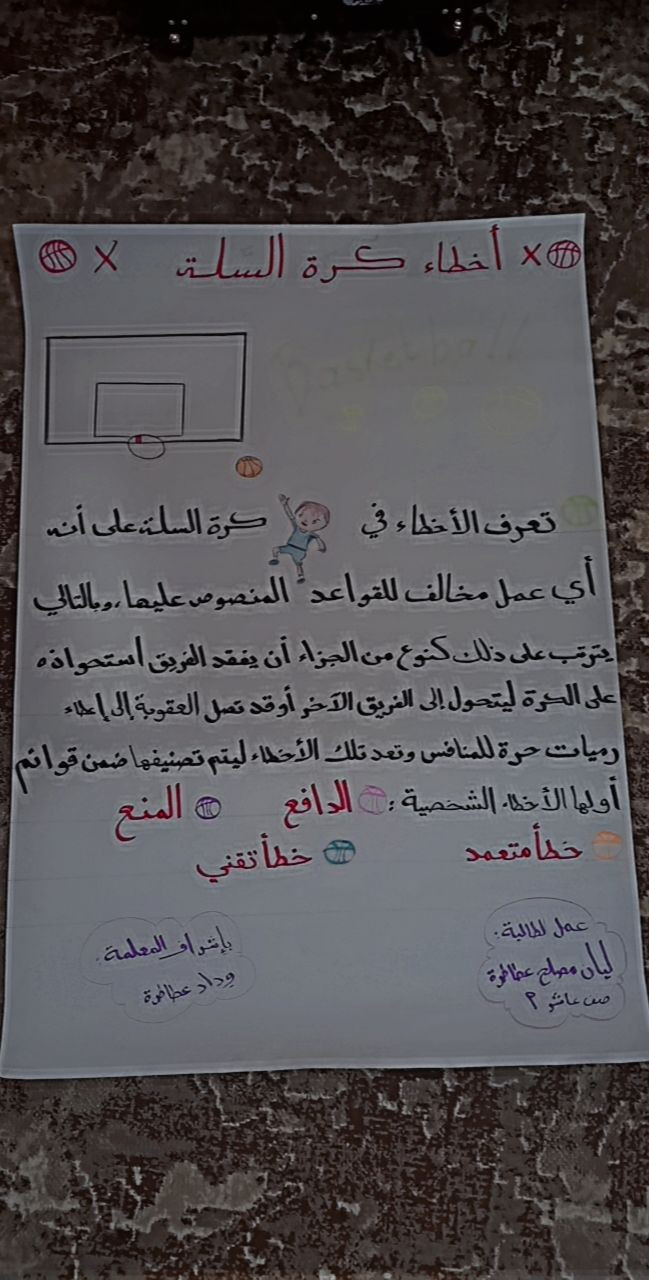 أخطاء كرة السلة
Basketball
تعرف الأخطاء في كرة السلة على أنه
أي عمل مخالف للقواعد المنصوص عليها، وبالتالي
يترتب على ذلك كنوع من الجزاء أن يفقد الفريق استحواذه
على الكرة ليتحول إلى الفريق الآخر أو قد تصل العقوبة إلى إعطاء
رميات حرة للمنافس وتعد تلك الأخطاء ليتم تصنيفها ضمن قوائم
أولها الأخطاء الشخصية: الدافع المنع
خطأ متعمد خطأ تقني
عمل لطالبة:
ليان مصلح عطاطرة
صف عاشر ٢
بإشراف المعلمة:
وداد عطاطرة